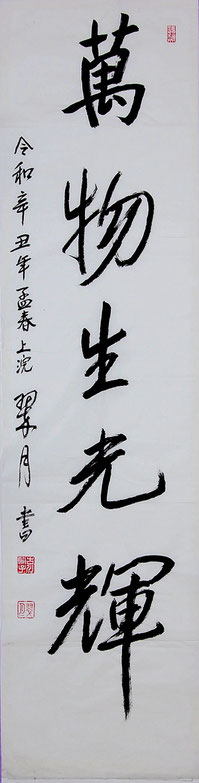 萬物生光輝
令和辛丑年孟春上浣 翠月書